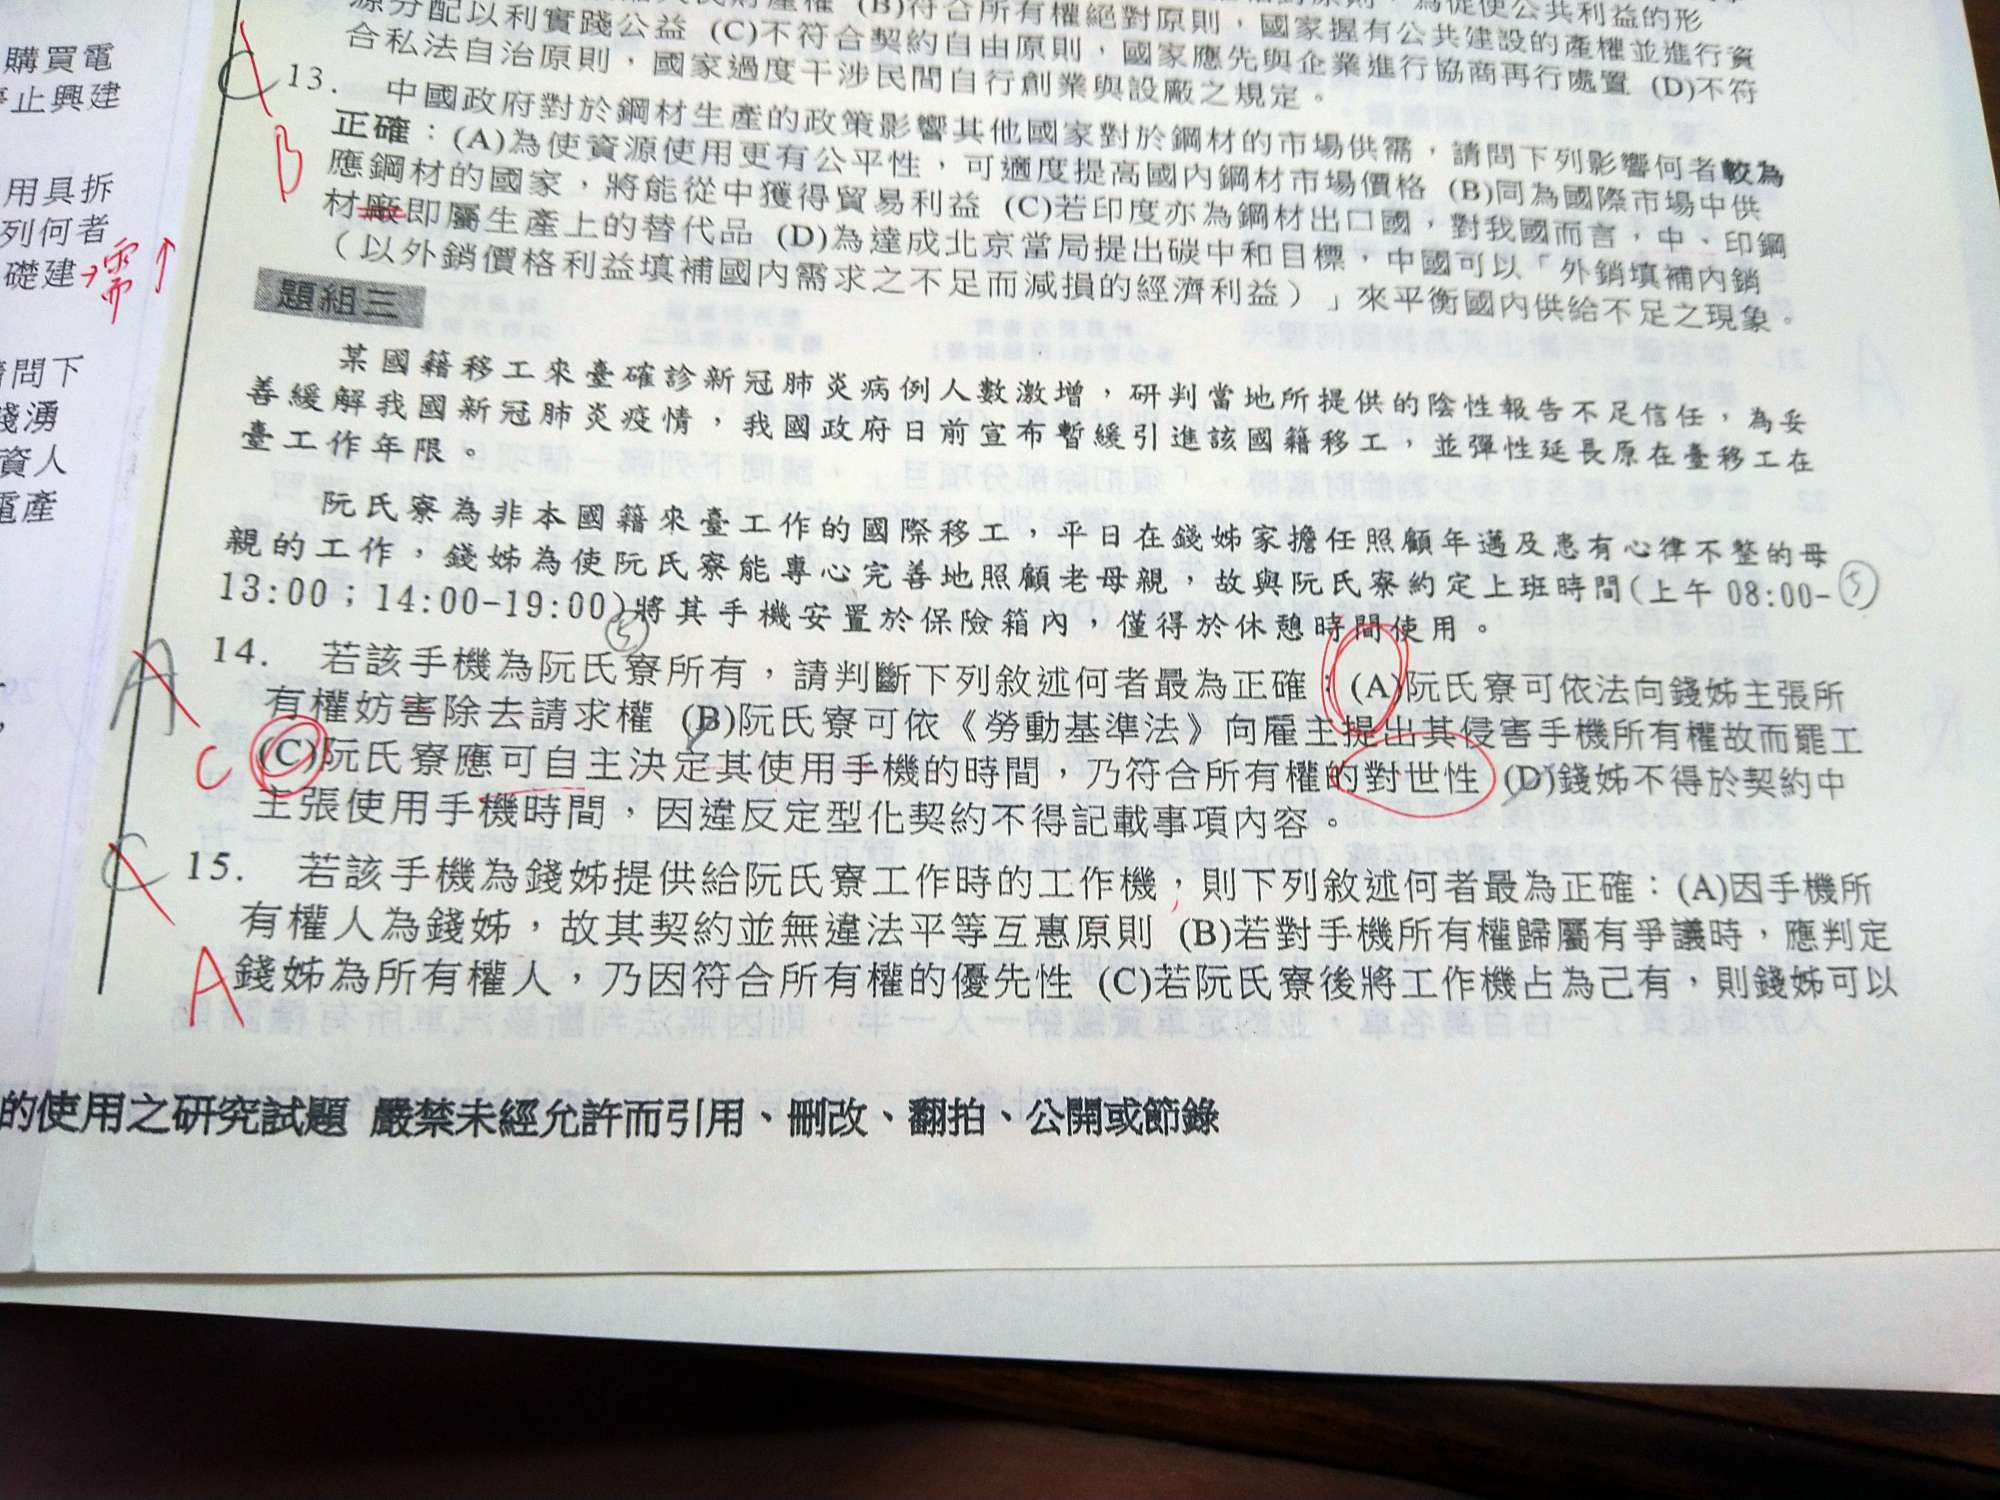 購買電
停止興建
用具拆
列何者
礎建
需↑
請問下
錢湧
資人
電產
源分配以利實踐公益 (C)不符合契約自由原則，國家應先與企業進行協商再行處置 (D)不符
合私法自治原則，國家過度干涉民間自行創業與設廠之規定。
C
B
13. 中國政府對於鋼材生產的政策影響其他國家對於鋼材的市場供需，請問下列影響何者較為
正確：(A)為使資源使用更有公平性，可適度提高國內鋼材市場價格 (B)同為國際市場中供
應鋼材的國家，將能從中獲得貿易利益 (C)若印度亦為鋼材出口國，對我國而言，中、印鋼
材廠即屬生產上的替代品 (D)為達成北京當局提出碳中和目標，中國可以「外銷填補內銷
（以外銷價格利益填補國內需求之不足而減損的經濟利益）」來平衡國內供給不足之現象。
題組三
某國籍移工來臺確診新冠肺炎病例人數激增，研判當地所提供的陰性報告不足信任，為妥
善緩解我國新冠肺炎疫情，我國政府日前宣布暫緩引進該國籍移工，並彈性延長原在臺移工在
臺工作年限。
阮氏寮為非本國籍來臺工作的國際移工，平日在錢姊家擔任照顧年邁及患有心律不整的母
親的工作，錢姊為使阮氏寮能專心完善地照顧老母親，故與阮氏寮約定上班時間(上午 08:00-
5
13:00；14:00-19:00)將其手機安置於保險箱內，僅得於休憩時間使用。
5
A
C
14. 若該手機為阮氏寮所有，請判斷下列敘述何者最為正確：(A)阮氏寮可依法向錢姊主張所
有權妨害除去請求權 (B)阮氏寮可依《勞動基準法》向雇主提出其侵害手機所有權故而罷工
(C)阮氏寮應可自主決定其使用手機的時間，乃符合所有權的對世性 (D)錢姊不得於契約中
主張使用手機時間，因違反定型化契約不得記載事項內容。
C
A
15. 若該手機為錢姊提供給阮氏寮工作時的工作機，則下列敘述何者最為正確：(A)因手機所
有權人為錢姊，故其契約並無違法平等互惠原則 (B)若對手機所有權歸屬有爭議時，應判定
錢姊為所有權人，乃因符合所有權的優先性 (C)若阮氏寮後將工作機占為己有，則錢姊可以
的使用之研究試題 嚴禁未經允許而引用、刪改、翻拍、公開或節錄